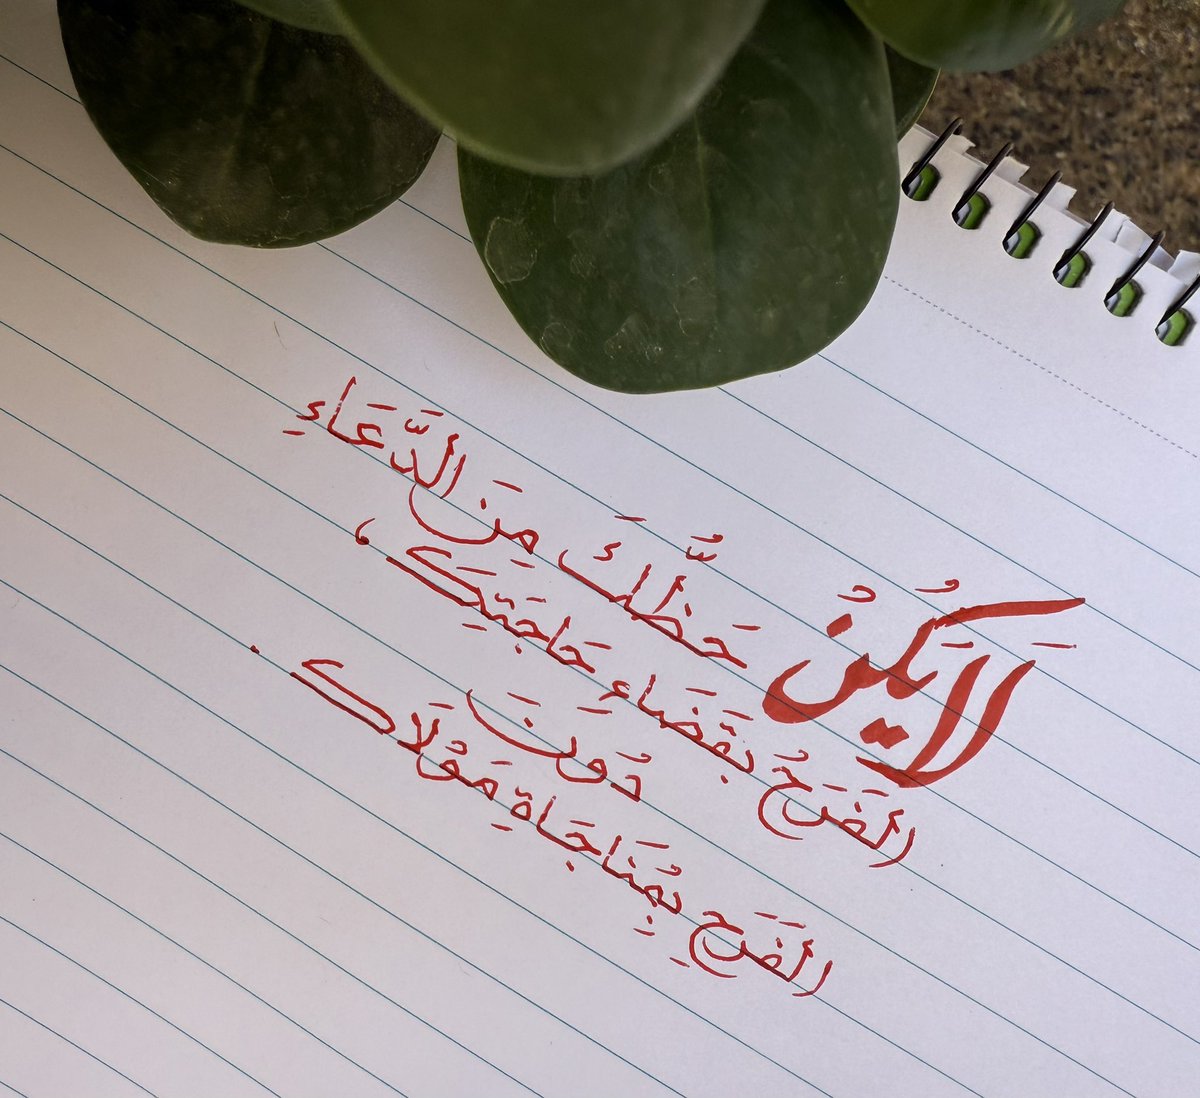 لَا يَكُنْ حَظُّكَ مِنَ الدَّعَاءِ
الْفَرَحُ بِقَضَاءِ حَاجَتِكَ،
دُونَ
الْفَرَحِ بِمُنَاجَاةِ مَوْلَاكَ.